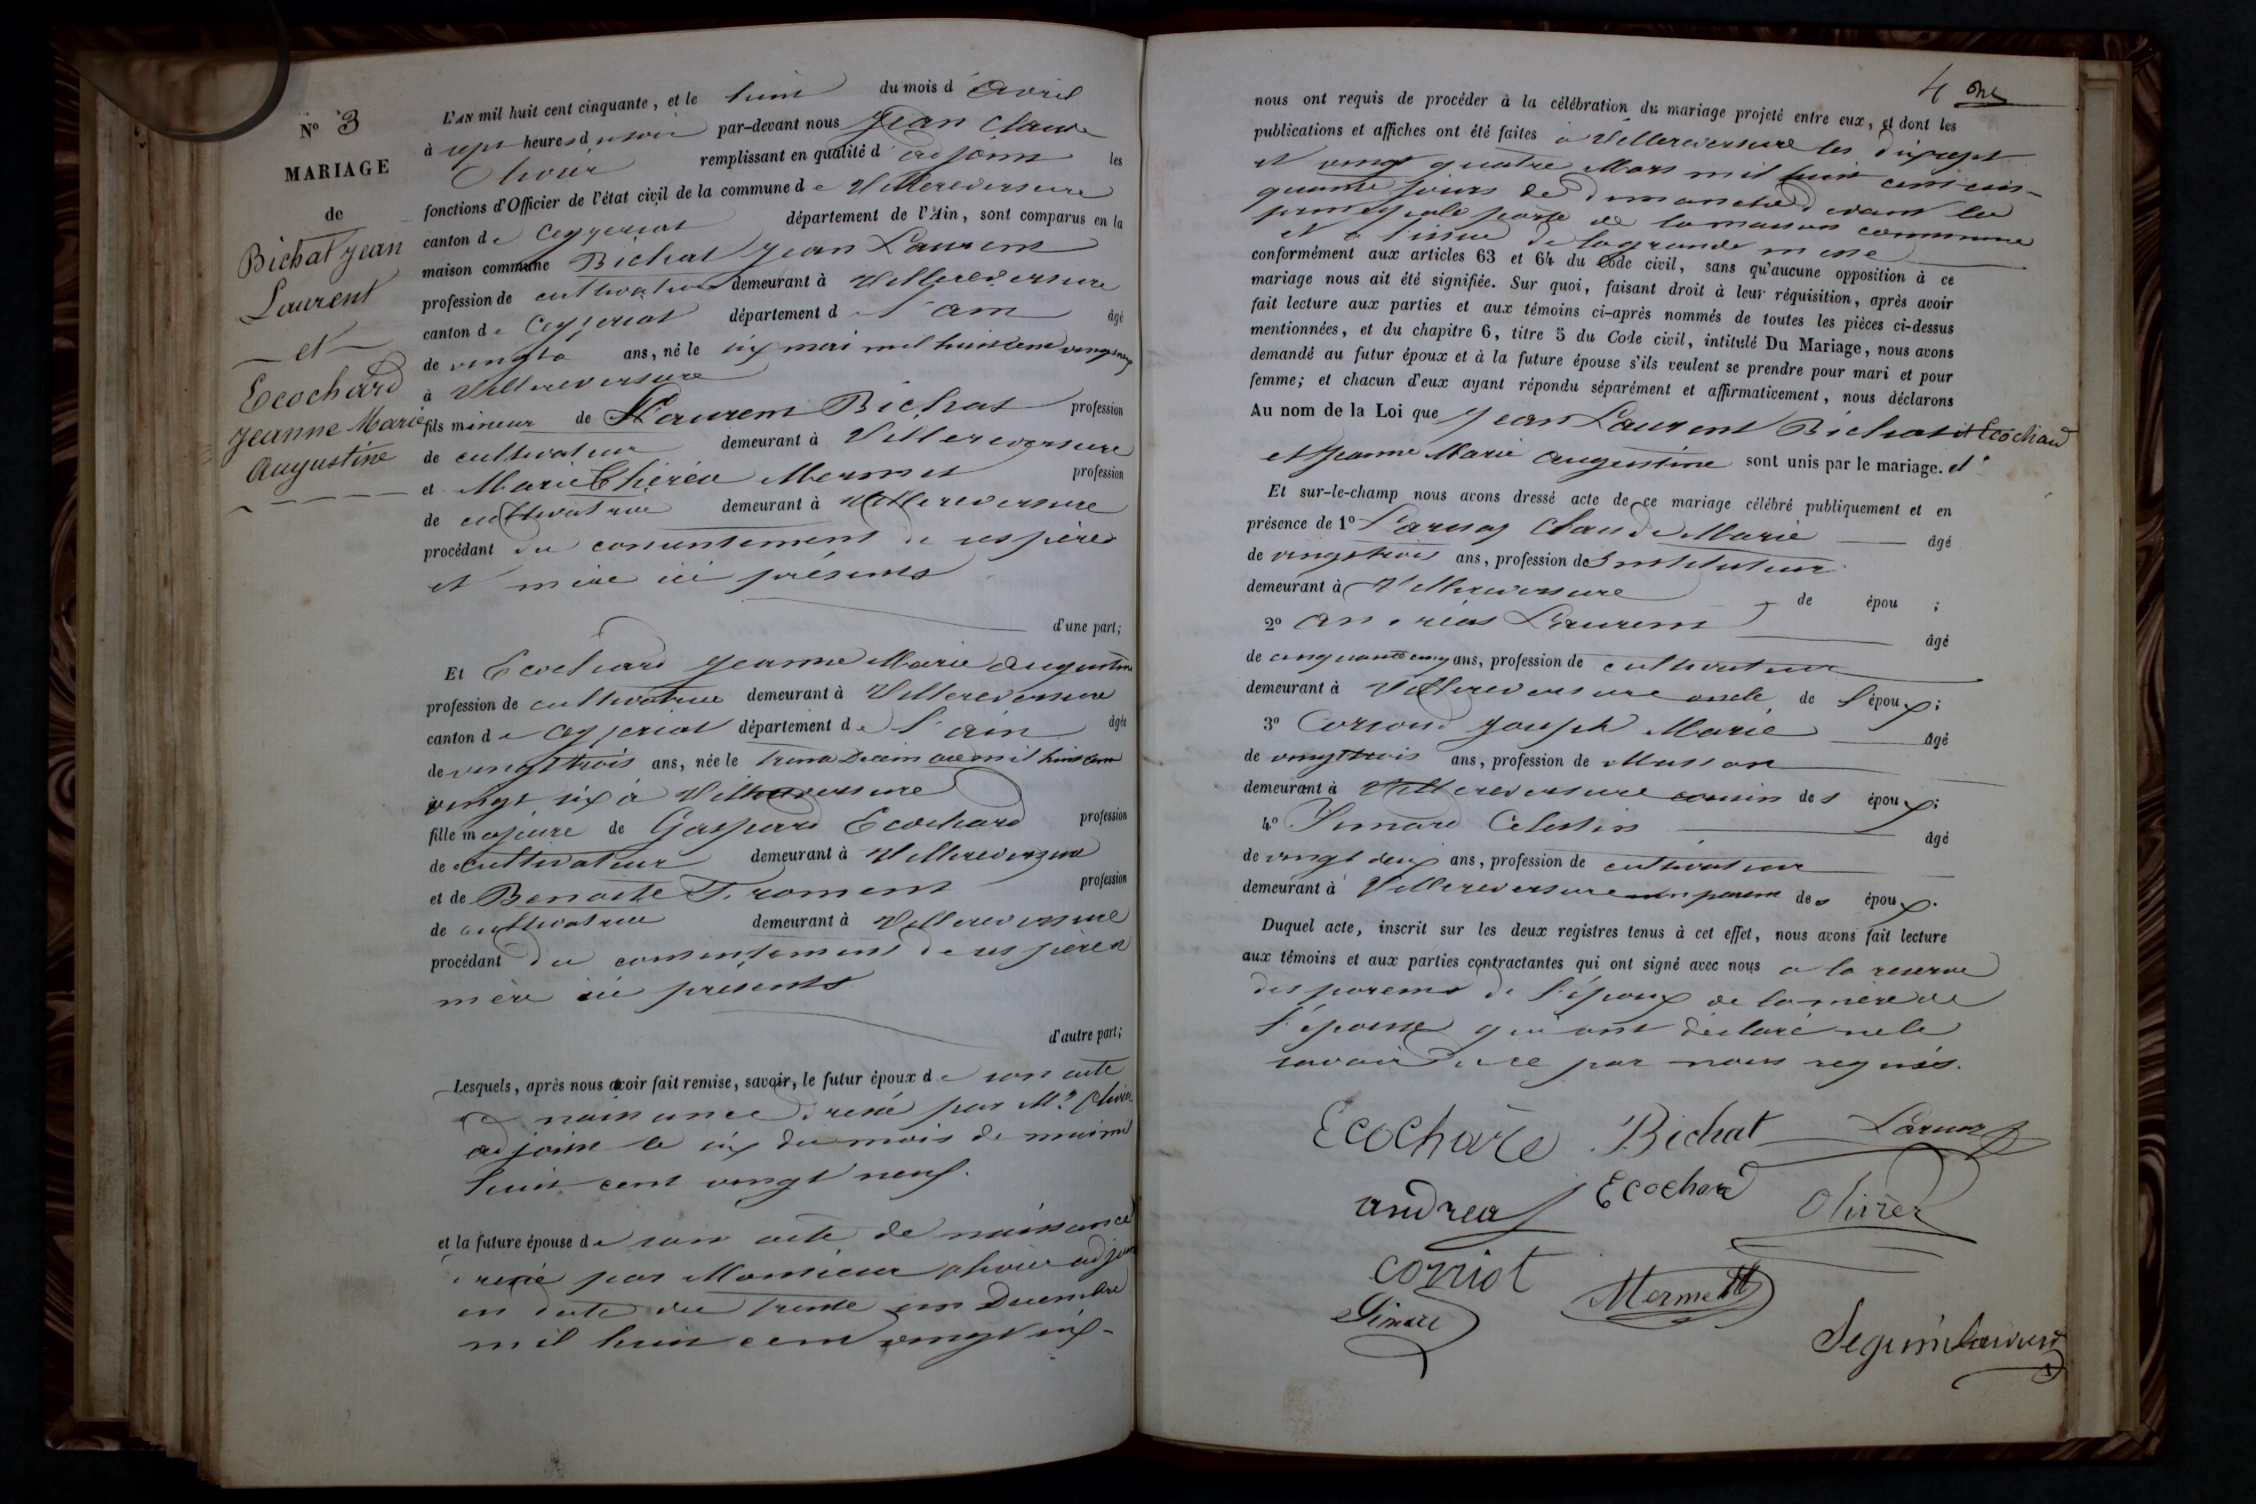 N° 3
MARIAGE
de
Bichat Jean
Laurent
et
Ecochard
Jeanne Marie
Augustine
L'AN mil huit cent cinquante, et le huit du mois d'avril
à sept heures du soir par-devant nous Jean Claude
Olivier remplissant en qualité d'adjoint les
fonctions d'Officier de l'état civil de la commune de Villereversure
canton de Ceyzeriat département de l'Ain, sont comparus en la
maison commune Bichat Jean Laurent
profession de cultivateur demeurant à Villereversure
canton de Ceyzeriat département de l'ain âgé
de vingt ans, né le six mai mil huit cent vingt neuf
à Villereversure
fils mineur de Laurent Bichat profession
de cultivateur demeurant à Villereversure
et Marie Thérèse Mermet profession
de cultivatrice demeurant à Villereversure
procédant du consentement de ses père
et mère ici présents
d'une part;
Et Ecochard Jeanne Marie Augustine
profession de cultivatrice demeurant à Villereversure
canton de Ceyzeriat département de l'ain âgée
de vingt trois ans, née le trente Décembre mil huit cent
vingt six à Villereversure
fille majeure de Gaspard Ecochard profession
de cultivateur demeurant à Villereversure
et de Benoite Froment profession
de cultivatrice demeurant à Villereversure
procédant du consentement de ses père et
mère ici présents
d'autre part;
Lesquels, après nous avoir fait remise, savoir, le futur époux de son acte
de naissance dressé par Mr Olivier
adjoint le six du mois de mai mil
huit cent vingt neuf.
et la future épouse de son acte de naissance
dressé par Monsieur Olivier adjoint
en date du trente un Décembre
mil huit cent vingt six
4
nous ont requis de procéder à la célébration du mariage projeté entre eux, et dont les
publications et affiches ont été faites à Villereversure les dix sept
et vingt quatre Mars mil huit cent cin-
quante jours de dimanche devant la
principale porte de la maison commune
et à l'issue de la grande messe
conformément aux articles 63 et 64 du Code civil, sans qu'aucune opposition à ce
mariage nous ait été signifiée. Sur quoi, faisant droit à leur réquisition, après avoir
fait lecture aux parties et aux témoins ci-après nommés de toutes les pièces ci-dessus
mentionnées, et du chapitre 6, titre 5 du Code civil, intitulé Du Mariage, nous avons
demandé au futur époux et à la future épouse s'ils veulent se prendre pour mari et pour
femme; et chacun d'eux ayant répondu séparément et affirmativement, nous déclarons
Au nom de la Loi que Jean Laurent Bichat et Ecochard
et Jeanne Marie Augustine sont unis par le mariage. et
Et sur-le-champ nous avons dressé acte de ce mariage célébré publiquement et en
présence de 1° Larnay Claude Marie âgé
de vingt trois ans, profession de Instituteur
demeurant à Villereversure de épou ;
2° Andréas Laurent âgé
de cinquante cinq ans, profession de cultivateur
demeurant à Villereversure oncle de l'époux;
3° Joseph Marie âgé
de vingt trois ans, profession de Masson
demeurant à Villereversure cousin des époux;
4° Simard Celestin âgé
de vingt deux ans, profession de cultivateur
demeurant à Villereversure parent des époux.
Duquel acte, inscrit sur les deux registres tenus à cet effet, nous avons fait lecture
aux témoins et aux parties contractantes qui ont signé avec nous a la reserve
des parents de l'époux de la mère de
l'épouse qui ont déclaré ne le
savoir de ce par nous requis.
Ecochard Bichat Larnay
andrea Ecochard Olivier
corriot Mermet
Simard